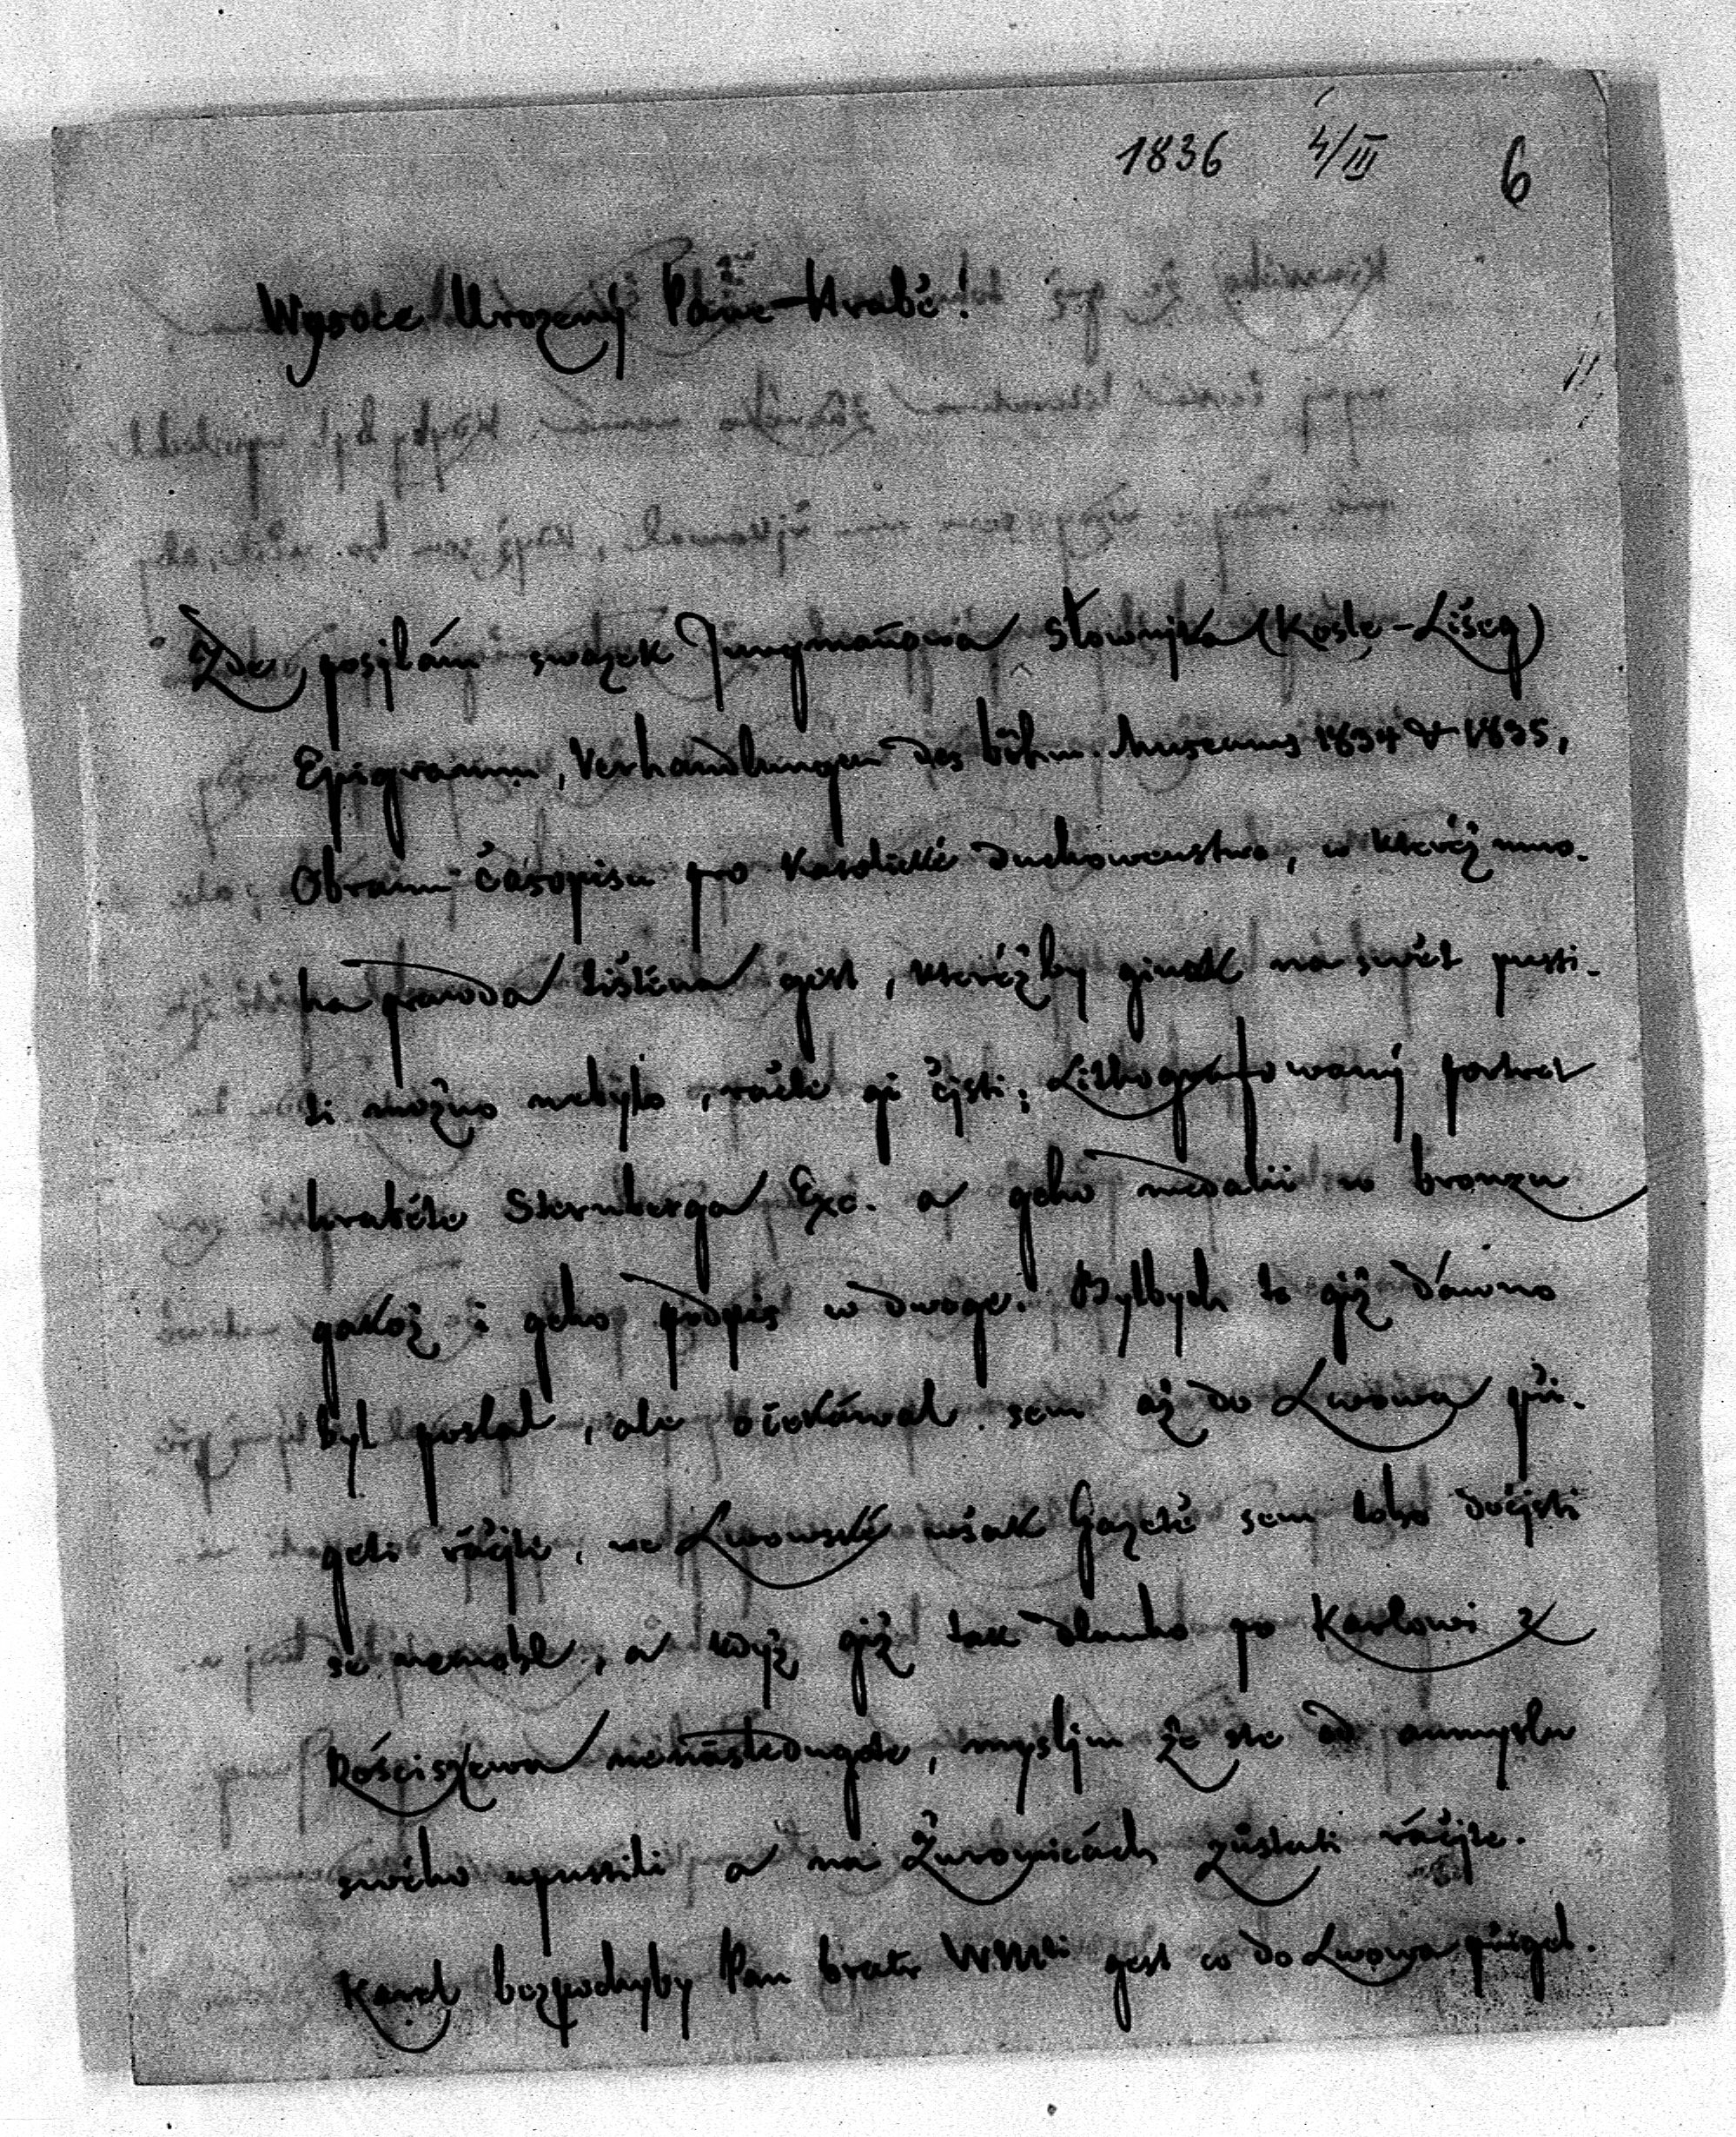 1836 4/III 6
Wysoce Urozený Pane Hrabě!
Zde posjlám swazek Jungmañowa Słownjka (Kosle-Lišeg)
Epigramm, Verhandlungen des böhm. Museums 1834 & 1835,
Obranu Časopisu pro Katolické duchowenstwo, w kteréž mno-
ha prawda tištěna gest, kteréžby ginak na swět pusti-
ti možno nebylo, račte gi čjsti; Lithografowaný portret
hraběte Sternberga Exc. a geho medalii w bronzu
gakož i geho podpis w dwoge. Bylbych to giž dáwno
byl poslal, ale očekáwal sem až do Lwowa při-
geti ráčjte, we Lwowské wšak Gazetě sem toho dočjsti
se nemohl, a když giž tak dlauho po Karlowi z
Rościszewa nenásledugete, mysljm že ste od aumyslu
swého upustili a na Žurowicách zůstati ráčjte.
Karel bezpochyby Pan bratr W.Mti gest co do Lwowa přigel.